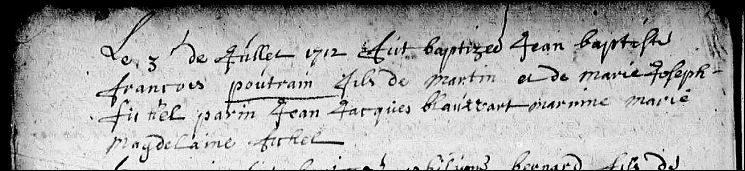 Le 3e de Jullet 1712 fut baptized Jean baptiste
francois poutrain fils de martin et de marie Joseph
fichel parin Jean Jacques blauwart marinne marie
magdelaine fichel
bernard fils de